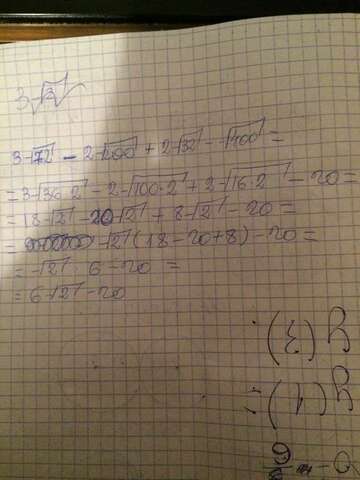 3√3
3√72 - 2√200 + 2√32 - √400 =
= 3√36·2 - 2√100·2 + 2√16·2 - 20 =
= 18√2 - 20√2 + 8√2 - 20 =
= √2(18-20+8) - 20 =
= √2·6 - 20 =
= 6√2 - 20
y(3)
y(1) =